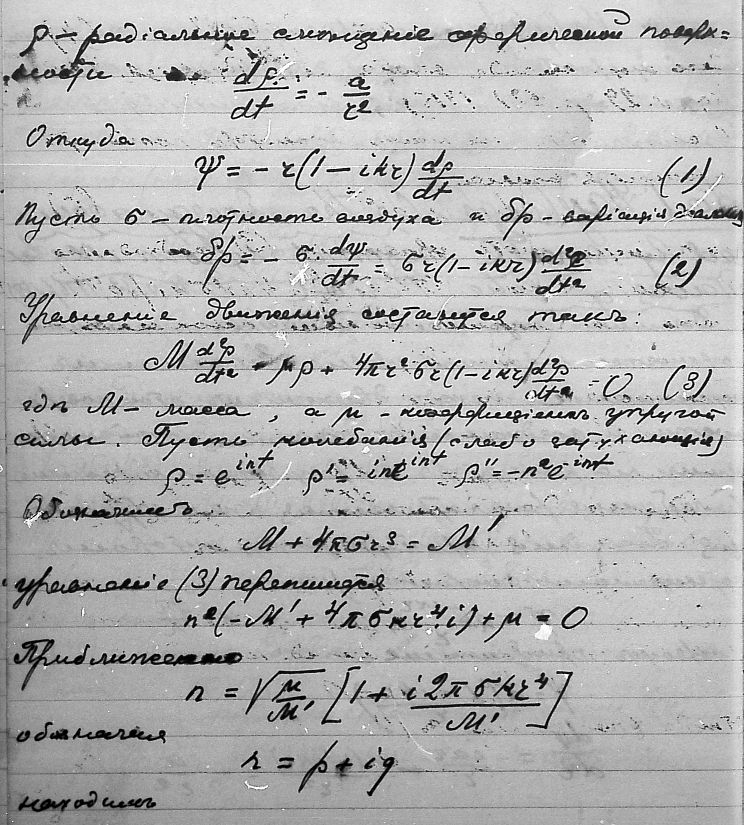 ρ — радіальное смещеніе сферической поверх=
ности
dρ/dt = - a/r²
Откуда
ψ = - r(1 - ikr) dρ/dt (1)
Пусть σ - плотность воздуха и δp - варіація
δp = - σ dψ/dt = σr(1-ikr) d²ρ/dt² (2)
Уравненіе движенія составится такъ:
M d²ρ/dt² + μρ + 4πr²σr(1-ikr) d²ρ/dt² = 0 (3)
гдѣ M - масса, а μ - коэффиціентъ упругой
силы. Пусть колебанія (слабо затухающія)
ρ = e^int ρ' = in e^int ρ'' = -n² e^int
Обозначивъ
M + 4πσr³ = M'
уравненіе (3) перепишется
n²(-M' + 4πσkr⁴i) + μ = 0
Приближенно
n = √(μ/M') [1 + i2πσkr⁴/M']
обозначая
n = p + iq
находимъ